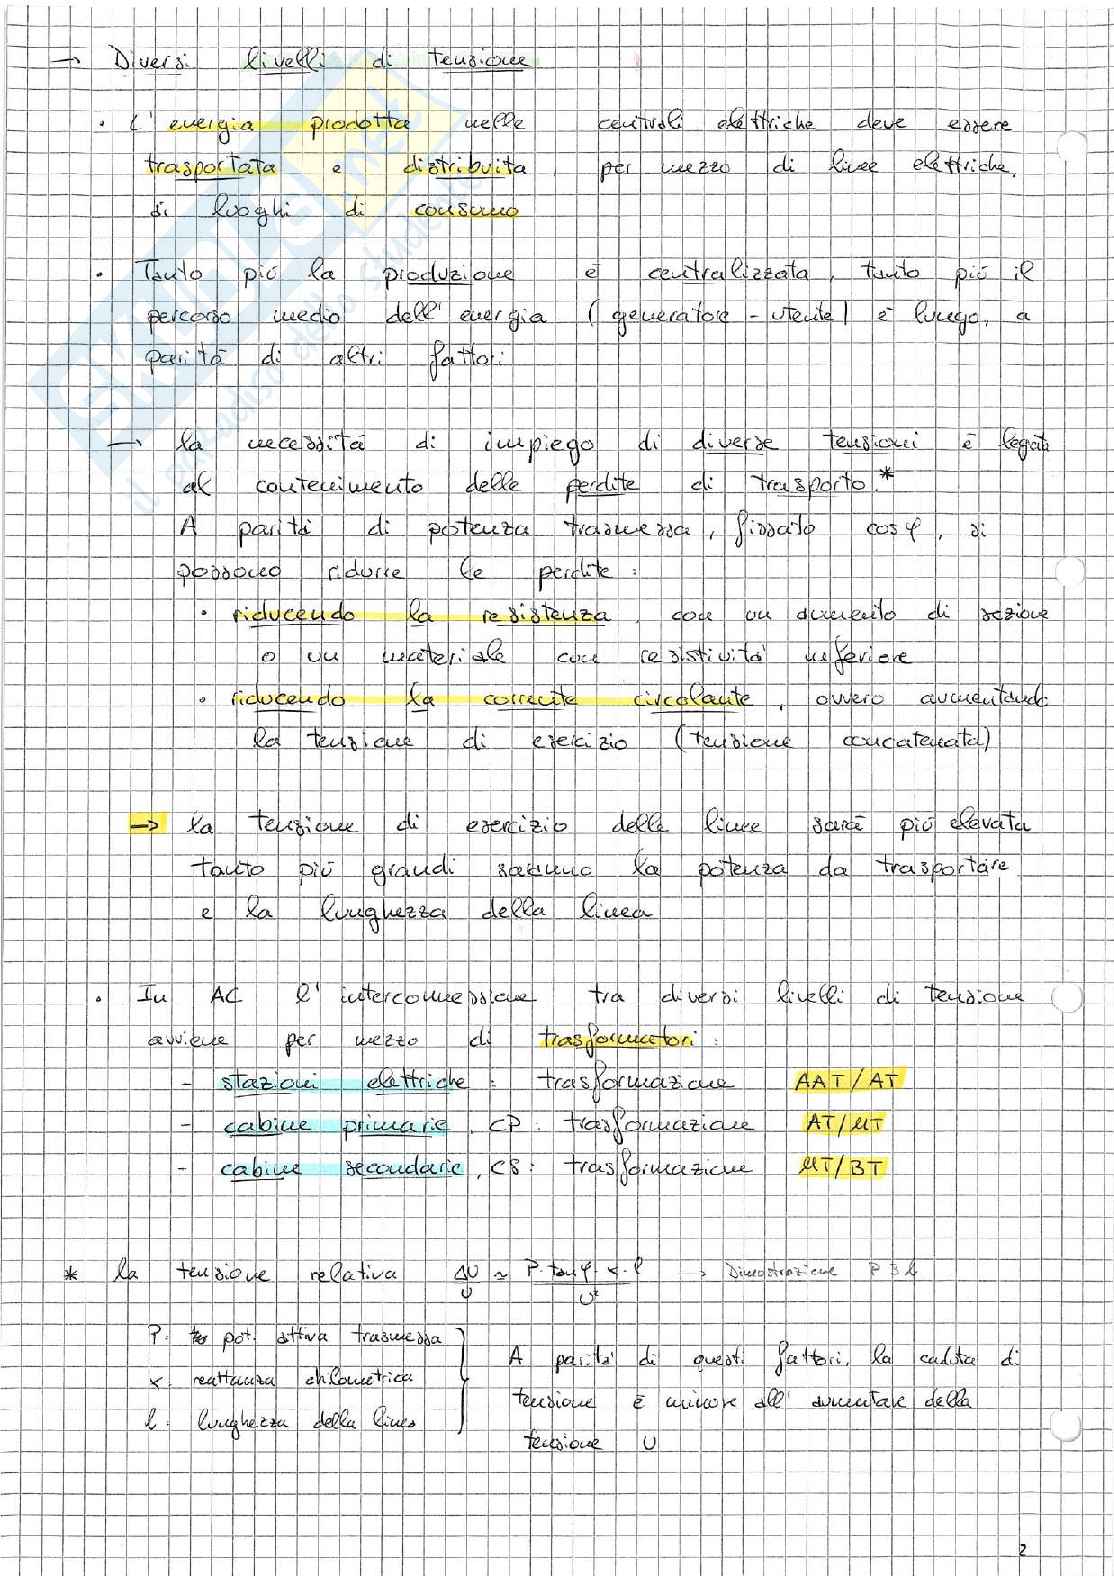 → Diversi livelli di tensione
• L'energia prodotta nelle centrali elettriche deve essere
trasportata e distribuita per mezzo di linee elettriche,
ai luoghi di consumo
• Tanto più la produzione è centralizzata, tanto più il
percorso medio dell'energia (generatore - utente) è lungo, a
parità di altri fattori
→ la necessità di impiego di diverse tensioni è legata
al contenimento delle perdite di trasporto.*
A parità di potenza trasmessa, fissato cosφ, si
possono ridurre le perdite:
• riducendo la resistenza, con un aumento di sezione
o un materiale con resistività inferiore
• riducendo la corrente circolante, ovvero aumentando
la tensione di esercizio (tensione concatenata)
→ la tensione di esercizio delle linee sarà più elevata
tanto più grandi saranno la potenza da trasportare
e la lunghezza della linea
• In AC l'interconnessione tra diversi livelli di tensione
avviene per mezzo di trasformatori:
- stazioni elettriche: trasformazione AAT/AT
- cabine primarie, CP: trasformazione AT/MT
- cabine secondarie, CS: trasformazione MT/BT
* la tensione relativa ΔU/U ≃ P·tanφ·x·l/U² → Dimostrazione
P: pot. attiva trasmessa
x: reattanza chilometrica
l: lunghezza della linea
A parità di questi fattori, la caduta di
tensione è minore all'aumentare della
tensione U
2